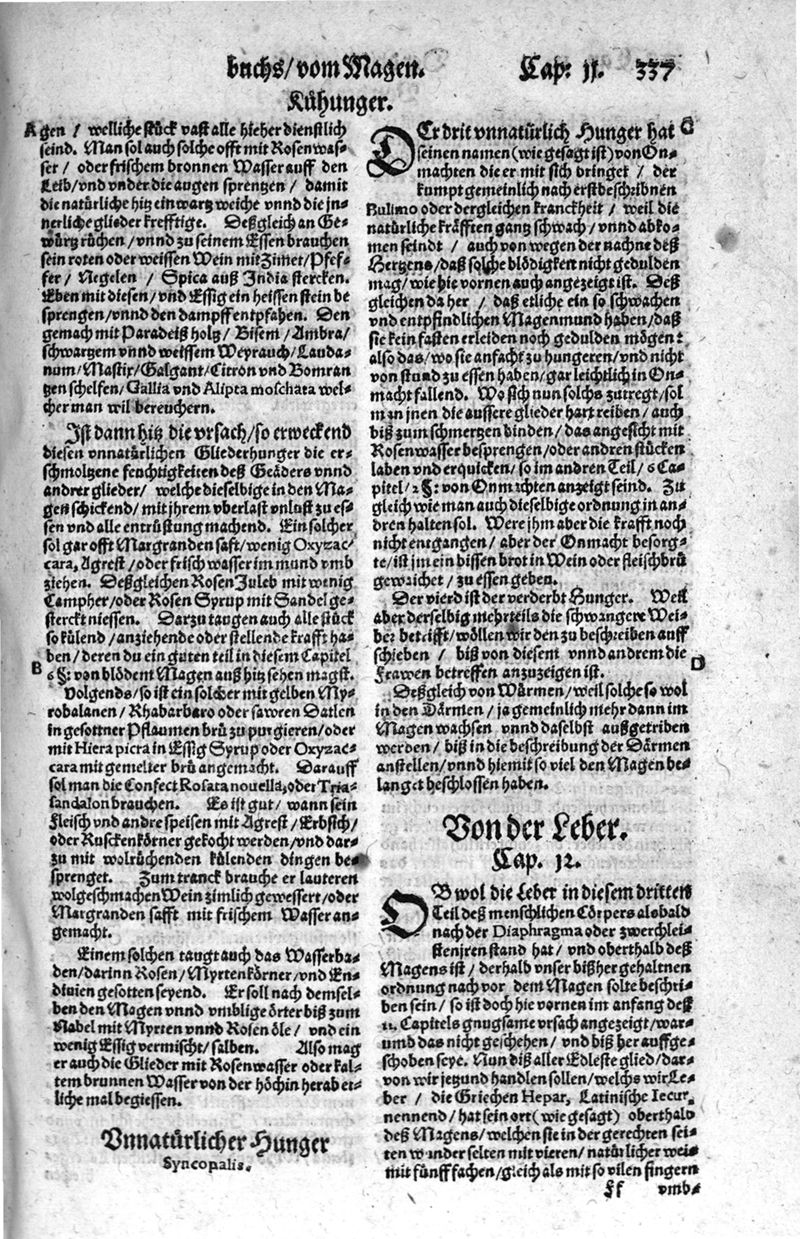 buchs/ vom Magen. Cap: 11. 337
Kühunger.
A gen / welliche stück vast alle hieher dienstlich
seind. Man sol auch solche offt mit Rosenwas-
ser / oder frischem bronnen Wasser auff den
Leib/ vnd vnder die augen sprengen / damit
die natürliche hitz einwartz weiche vnnd die jn-
nerliche glieder krefftige. Deßgleich an Ge-
würtz rüchen / vnnd zu seinem Essen brauchen
sein roten oder weissen Wein mit Zimet/ Pfef-
fer / Negelen / Spica auß India stercken.
Eben mit diesen/ vnd Essig ein heissen stein be
sprengen/ vnnd den dampff entpfahen. Den
gemach mit Paradeiß holtz / Bisem / Ambra/
schwartzem vnnd weissem Weyrauch/ Lauda-
num/ Mastix/ Galgant/ Citron vnd Bomran
tzen schelfen/ Gallia vnd Alipta moschata wel-
cher man wil bereuchern.
Ist dann hitz die vrsach/ so erweckend
diesen vnnatürlichen Gliederhunger die er-
schmoltzene feuchtigkeiten deß Geäders vnnd
andrer glieder/ welche dieselbige in den Ma-
gen schickend/ mit jhrem vberlast vnlust zu es-
sen vnd alle entrüstung machend. Ein solcher
sol gar offt Margranden saft/ wenig Oxyzac-
cara, Agrest / oder frisch wasser im mund vmb
ziehen. Deßgleichen Rosen Juleb mit wenig
Campher/ oder Rosen Syrup mit Sandel ge-
sterckt niessen. Darzu taugen auch alle stück
so külend / anziehende oder stellende krafft ha-
ben/ deren du ein guten teil in diesem Capitel
B 6 §: von blödem Magen auß hitz sehen magst.
Volgends/ so ist ein solcher mit gelben My-
robalanen/ Rhabarbaro oder sawren Datlen
in gesottner Pflaumen brü zu purgieren/ oder
mit Hiera picra in Essig Syrup oder Oxyzac-
cara mit gemelter brü angemacht. Darauff
sol man die Confect Rosata nouella, oder Tria-
sandalon brauchen. Es ist gut / wann sein
Fleisch vnd andre speisen mit Agrest / Erbsich/
oder Rusckenkörner gekocht werden/ vnd dar-
zu mit wolrüchenden külenden dingen be-
sprenget. Zum tranck brauche er lauteren
wolgeschmachen Wein zimlich gewessert/ oder
Margranden safft mit frischem Wasser an-
gemacht.
Einem solchen taugt auch das Wasserba-
den/ darinn Rosen/ Myrtenkörner/ vnd En-
diuien gesotten seyend. Er soll nach demsel-
ben den Magen vnnd vmblige örter biß zum
Nabel mit Myrten vnnd Rosen öle/ vnd ein
wenig Essig vermischt/ salben. Also mag
er auch die Glieder mit Rosenwasser oder kal-
tem brunnen Wasser von der höchin herab et-
liche mal begiessen.
Vnnatürlicher Hunger
Syncopalis.
DEr drit vnnatürlich Hunger hat C
seinen namen (wie gesagt ist) von On-
machten die er mit sich bringet / der
kumpt gemeinlich nach erst beschribnen
Bulimo oder dergleichen kranckheit / weil die
natürliche kräfften gantz schwach/ vnnd abko-
men seindt / auch von wegen der nachne deß
Hertzens/ daß solche blödigkeit nicht gedulden
mag/ wie hie vornen auch angezeigt ist. Deß
gleichen da her / daß etliche ein so schwachen
vnd entpfindlichen Magenmund haben/ daß
sie kein fasten erleiden noch gedulden mögen:
also das/ wo sie anfacht zu hungeren/ vnd nicht
von stund zu essen haben/ gar leichtlich in On-
macht fallend. Wo sich nun solchs zutregt/ sol
man jnen die aussere glieder hart reiben / auch
biß zum schmertzen binden/ das angesicht mit
Rosenwasser besprengen/ oder andren stücken
laben vnd erquicken/ so im andren Teil/ 6 Ca-
pitel/ 2 §: von Onmachten anzeigt seind. Zu
gleich wie man auch dieselbige ordnung in an-
dren halten sol. Were jhm aber die krafft noch
nicht entgangen/ aber der Onmacht besorg-
te/ ist jm ein bissen brot in Wein oder fleischbrü
geweichet / zu essen geben.
Der vierd ist der verderbt Hunger. Weil
aber derselbig mehrteils die schwangere Wei-
ber betrifft/ wöllen wir den zu beschreiben auff
schieben / biß von diesem vnnd andrem die D
Frawen betreffen anzuzeigen ist.
Deßgleich von Würmen/ weil solche so wol
in den Därmen / ja gemeinlich mehr dann im
Magen wachsen vnnd daselbst außgetriben
werden/ biß in die beschreibung der Därmen
anstellen/ vnnd hiemit so viel den Magen be-
langet beschlossen haben.
Von der Leber.
Cap. 12.
OB wol die Leber in diesem dritten
Teil deß menschlichen Cörpers alsbald
nach der Diaphragma oder zwerchlei-
stenjren stand hat / vnd oberthalb deß
Magens ist / derhalb vnser bißher gehaltnen
ordnung nach vor dem Magen solte beschri-
ben sein/ so ist doch hie vornen im anfang deß
11. Capitels gnugsame vrsach angezeigt/ war-
umb das nicht geschehen/ vnd biß her auffge-
schoben seye. Nun diß aller Edleste glied/ dar-
von wir jetzund handlen sollen/ welchs wir Le-
ber / die Griechen Hepar, Latinische Iecur,
nennend/ hat sein ort (wie gesagt) oberthalb
deß Magens/ welchen sie in der gerechten sei-
ten wunder selten mit vieren/ natürlicher wei-
mit fünff fachen/ gleich als mit so vilen fingern
Ff vmb-